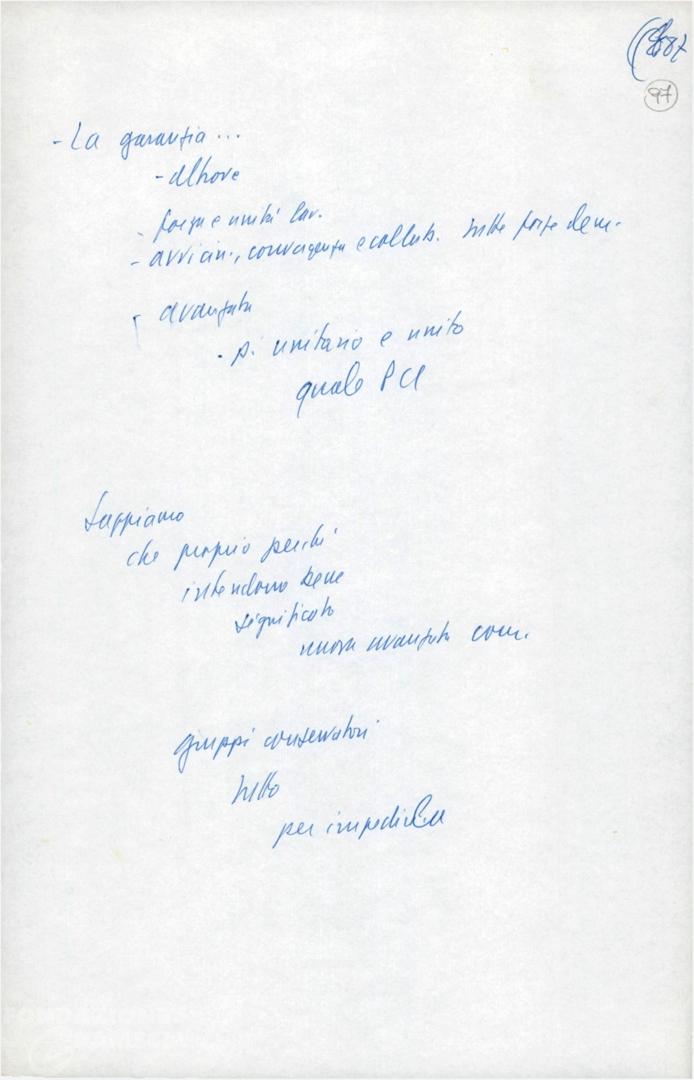 97
- La garanzia ...
- altrove
- forza e unità lav.
- avvicin., convergenza e collab. tutte forze dem.
avanzata
- p. unitario e unito
quale PCI
Sappiamo
che proprio perché
intendono bene
significato
nuova avanzata com.
gruppi conservatori
tutto
per impedirla